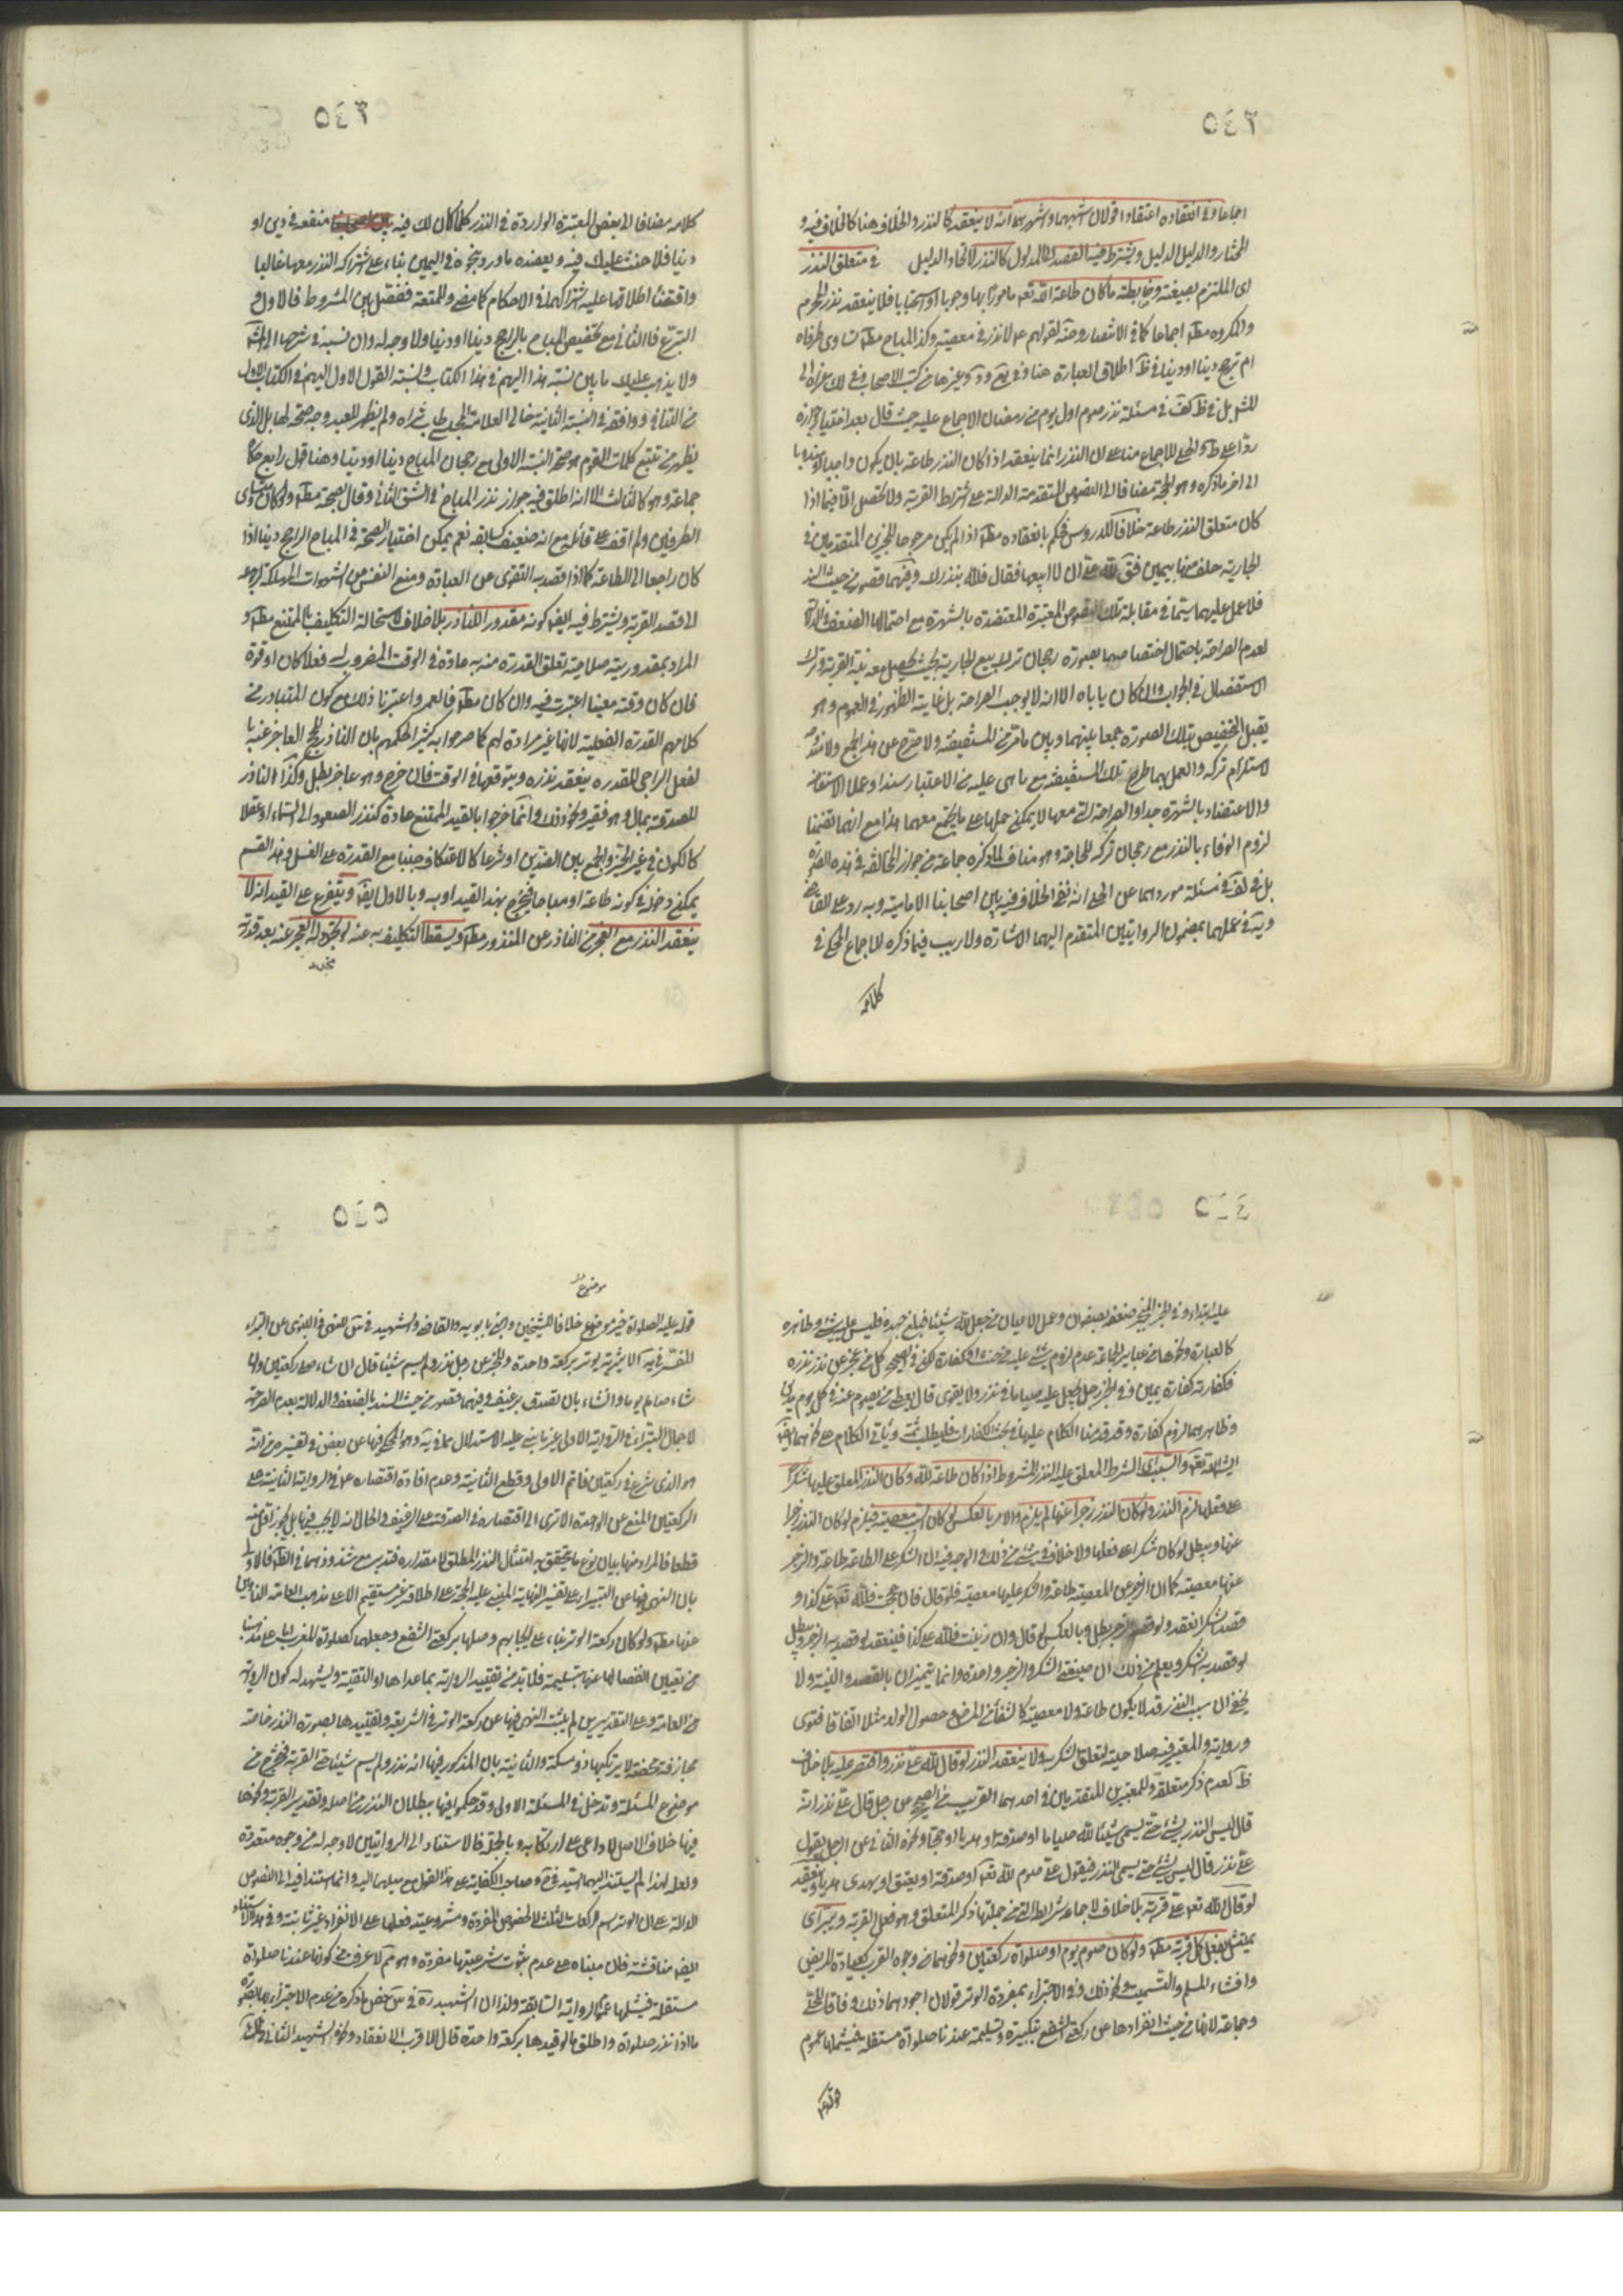 ٥٤٢
اجماعا و في انعقاده اعتقادا قولان اشبههما و اشهرهما انه لا ينعقد كالنذر و الخلاف هنا كالخلاف فيه و
المختار و الدليل الدليل و يشترط فيه القصد الى المدلول كالنذر لاتحاد الدليل في متعلق النذر
اى الملتزم بصيغته و ضابطته ما كان طاعة لله تعـ مامورا بها وجوبا او استحبابا فلا ينعقد نذر المحرم
و المكروه مطـ اجماعا كما في الانتصار و منه لقولهم عـ لا نذر في معصية و كذا المباح مطـ تساوى طرفاه
ام ترجح دينا او دنيا في ظـ اطلاق العبارة هنا و في يع و د و غيرها من كتب الاصحاب و في لك عزاه الى
المشهور بل في ظـ كف في مسئلة نذر صوم اول يوم من رمضان الاجماع عليه حيث قال بعد اختيار جوازه
ردا على ط و الحلي للاجماع منا على ان النذر انما ينعقد اذا كان النذر طاعة بان يكون واجبا او مندوبا
الى اخر ما ذكره و هو الحجة مضافا الى النصوص المتقدمة الدالة على اشتراط القربة و لا تحصل الا فيما اذا
كان متعلق النذر طاعة خلافا للدروس فحكم بانعقاده مطـ اذا لم يكن مرجوحا للخبرين المتقدمين في
الجارية حلف منها بيمين فقـ لله على ان لا ابيعها فقال فلله بنذرك و فيهما قصور من حيث السند
فلا عمل عليهما سيما في مقابلة تلك النصوص المعتبرة المعتضدة بالشهرة مع احتمالهما الضعف في الدلالة
لعدم الصراحة باحتمال اختصاصهما بصورة رجحان ترك بيع الجارية بحيث يحصل معه نية القربة و ترك
الاستفصال في الجواب و ان كان ياباه الا انه لا يوجب الصراحة بل غايته الظهور في العموم و هو
يقبل التخصيص بتلك الصورة جمعا بينهما و بين ما مر من المستفيضة و لا مخرج عن هذا الجمع و لا مندوحة
لاستلزام تركه و العمل بهما طرح تلك المستفيضة مع ما هى عليه من الاعتبار سندا و عملا الاستفاضة
و الاعتضاد بالشهرة جدا و الصراحة التي معها لا يمكن حملها على ما يجتمع معهما هذا مع انهما تضمنا
لزوم الوفاء بالنذر مع رجحان تركه للحاجة و هو مناف لما ذكره جماعة من جواز المخالفة في هذه الصورة
بل في لف في مسئلة موردهما عن الحلي انه نفى الخلاف فيه بين اصحابنا الامامية و به رد على القاضي
و يه في عملهما بمضمون الروايتين المتقدم اليهما الاشارة و لا ريب فيما ذكره للاجماع المحكي في
كلامه
٥٤٣
كلامه مضافا الى بعض المعتبرة الواردة في النذر كلما كان لك فيه منفعة في دين او
دنيا فلا حنث عليك فيه و يعضده ما ورد بنحوه في اليمين بناء على اشتراكه النذر معها غالبا
و اقتضاء اطلاقها عليه اشتراكهما في الاحكام كما مضى و للمتعة ففصل بين المشروط فالاول و
التبرع فالثاني مع تخصيص المباح بالراجح دينا او دنيا و لا وجه له و ان نسبه في شرحها الى المشـ
و لا يذهب عليك ما بين نسبته هذا اليهم في هذا الكتاب و نسبته القول الاول اليهم في الكتاب الاول
من التنافي و وافقه في النسبة الثانية خالي العلامة المجلسي طاب ثراه و لم يظهر للعبد وجه صحة لها بل الذي
يظهر من تتبع كلمات القوم هو صحة النسبة الاولى مع رجحان المباح دينا او دنيا و هنا قول رابع حكاه
جماعة و هو كالثالث الا انه اطلق فيه جواز نذر المباح في الشق الثاني و قال بصحته مطـ و لو كان متساوى
الطرفين و لم اقف على قائله مع انه ضعيف كسابقه نعم يمكن اختيار الصحة في المباح الراجح دينا اذا
كان راجعا الى الطاعة كما اذا قصد به التقوى على العبادة و منع النفس من الشهوات المهلكة لرجوعه
الى قصد القربة و يشترط فيه ايضـ كونه مقدور للناذر بلا خلاف لاستحالة التكليف بالممتنع مطـ و
المراد بمقدوريته صلاحية تعلق القدرة منه به عادة في الوقت المضروب له فعلا كان او قوة
فان كان وقته معينا اعتبرت فيه و ان كان مطـ فالعمر و اعتبرنا ذلك مع كون المتبادر من
كلامهم القدرة الفعلية لانها غير مرادة لهم كما صرحوا به كثيرا لحكمهم بان الناذر للحج العاجز عنه با
لفعل الراجى للقدرة ينعقد نذره و يتوقعها في الوقت فان خرج و هو عاجز بطل و كذا الناذر
للصدقة بمال و هو فقير و نحو ذلك و انما خرجوا بالقيد الممتنع عادة كنذر الصعود الى السماء او عقلا
كالكون في غير الحيز و الجمع بين الضدين او شرعا كالاعتكاف جنبا مع القدرة على الغسل و هذا القسم
يمكن دخوله في كونه طاعة او مباحا فيخرج بهذا القيد او به و بالاول ايضـ و يتفرع على القيد انه لا
ينعقد النذر مع العجز من الناذر عن المنذور مطـ و يسقط التكليف به عنه لو تجدد له العجز عنه بعد قدرته
٥٤٤
عليه ابتداء و في الخبر ضعف
كالعبارة و نحوها من عباير الجماعة عدم لزوم شئ عليه من حنث او كفارة لكن في الصحيح كل من عجز عن نذر نذره
فكفارته كفارة يمين و في الخبر رجل يجعل عليه صياما في نذر و لا يقوى قال يعطى من يصوم عنه في كل يوم مدين
و ظاهرهما لزوم كفارة و قد قدمنا الكلام عليها في بحث الكفارات فليطلب ثمت و ياتي الكلام على نحوهما ايضـ
انشـ الله تعـ و السبب اى الشرط المعلق عليه النذر المشروط اذا كان طاعة لله و كان النذر المعلق عليها شكرا
على فعلها لزم النذر و لو كان النذر زجرا عنها لم يلزم و الامر بالعكس لو كان السبب معصية فيلزم لو كان النذر زجرا
عنها و يبطل لو كان شكرا على فعلها و لا خلاف في شئ من ذلك و الوجه فيه ان الشكر على الطاعة طاعة و الزجر
عنها معصية كما ان الزجر عن المعصية طاعة و الشكر عليها معصية فلو قال فان حججت فلله تعـ على كذا و
قصد الشكر انعقد و لو قصد الزجر بطل و بالعكس لو قال و ان زنيت فلله على كذا فينعقد لو قصد به الزجر و يبطل
لو قصد به الشكر و يعلم من ذلك ان صيغتي الشكر و الزجر واحدة و انما يتميزان بالقصد و النية و لا
يخفى ان سبب النذر قد لا يكون طاعة و لا معصية كالشفاء من المرض و حصول الولد مثلا اتفاقا فتوى
و رواية و المعتبر فيه صلاحيته لتعلق الشكر به و لا ينعقد النذر لو قال لله على نذر و اقتصر عليه بلا خلاف
ظـ لعدم ذكر متعلقه و للمعتبرين المتقدمين في احدهما القريب من الصحيح عن رجل قال على نذر انه
قال ليس النذر بشئ حتى يسمى شيئا لله صياما او صدقة او هديا او حجا و نحوه الثاني عن الرجل يقول
على نذر قال ليس بشئ حتى يسمى النذر فيقول على صوم لله تعـ او صدقة او يعتق او يهدى هديا و ينعقد
لو قال لله تعـ على قربة بلا خلاف لاجماعه شرايط التي من جملتها ذكر المتعلق و هو فعل القربة و يبر اى
يمتثل بفعل كل قربة مطـ و لو كان صوم يوم او صلوة ركعتين و نحوهما من وجوه القرب كعيادة المريض
و افشاء السلم و التسميت و نحو ذلك و في الاجتزاء بمفردة الوتر قولان اجودهما ذلك وفاقا للحلي
و جماعة لانها من حيث انفرادها عن ركعتي الشفع بتكبيرة و تسليمة عندنا صلوة مستقلة فيشملها عموم
قوله عـ
٥٤٥
قوله عليه الصلوة خير موضوع خلافا للشيخين و ابني بابويه و القاضي و الشهيد في س للنهي في النبوي عن البتراء
المفسر في يه الاثيرية بوتر بركعة واحدة و للخبر عن رجل نذر و لم يسم شيئا قال ان شاء صلى ركعتين و ان
شاء صام يوما و ان شاء بان تصدق برغيف و فيهما قصور من حيث السند بالضعف و الدلالة بعدم الصراحة
لاجمال البتراء في الرواية الاولى
هو الذي شرع في ركعتين فاتم الاولى و قطع الثانية و عدم افادة اقتصاره عـ في الرواية الثانية على
الركعتين المنع عن الواحدة الا ترى الى اقتصاره في الصدقة على الرغيف و الحال انه لا يجب فيها بل يجوز اقل منه
قطعا فالمراد منها بيان نوع ما يتحقق به امتثال النذر المطلق لا مقداره
عنها مطـ و لو كان ركعة الوتر
من تعيين انفصالها عنها بتسليمة فلا بد من تقييد الرواية بما عداها او التقية و يشهد له كون الرواية
من العامة و على التقديرين لم يثبت النهي فيها عن ركعة الوتر في الشريعة و تقييدها بصورة النذر خاصة
مجازفة محضة لا يرتكبها ذو مسكة و الثانية بان المذكور فيها انه نذر و لم يسم شيئا حتى القربة فيخرج من
موضوع المسئلة و تدخل في المسئلة الاولى و قد حكموا فيها ببطلان النذر من اصله و تقدير القربة و نحوها
فيها خلاف الاصل لا داعى على ارتكابه و بالجملة فالاستناد الى الروايتين لا وجه له من وجوه متعددة
و لعله لهذا لم يستند اليهما السيد في ح و صاحب الكفاية على هذا القول مع ميلهما اليه و انما استندا فيه الى النصوص
الدالة على ان الوتر اسم للركعات الثلث لا لخصوص المفردة و مشروعية فعلها على الانفراد غير ثابتة و في هذا الاستناد
ايضـ مناقشة فان مبناه على عدم ثبوت شرعيتها مفردة و هو مم لما عرفت من كونها عندنا صلوة
مستقلة فيشملها عموم الرواية السابقة و لذا ان الشهيد ره في س خص ما ذكره من عدم الاجتزاء بها بصورة
ما اذا نذر صلوة و اطلق و لو قيدها بركعة واحدة قال الاقرب الانعقاد و نحوه الشهيد الثاني و ذلك